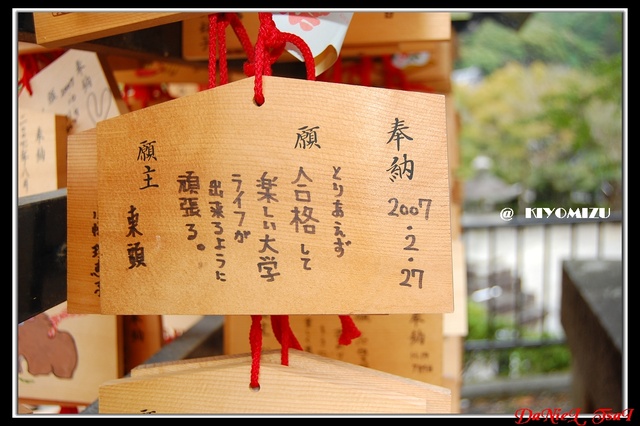 奉納
2007.2.27
願
とりあえず
合格して
楽しい大学
ライフが
出来るように
頑張る。
願主
東頭
奉納
奉納
奉納
@ KIYOMIZU
DaNieL TsaI